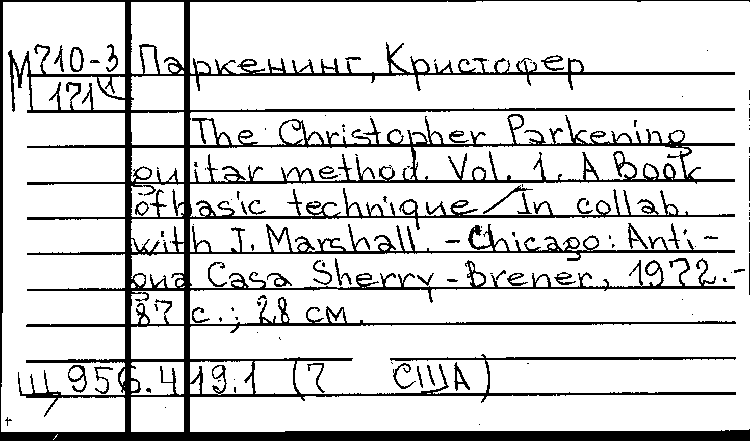 М 710-3 Паркенинг, Кристофер
171
The Christopher Parkening
guitar method. Vol. 1. A Book
of basic technique / In collab.
with J. Marshall. - Chicago: Anti-
gua Casa Sherry-Brener, 1972.-
87 с.; 28 см.
Ш 956.419.1 (7 США)